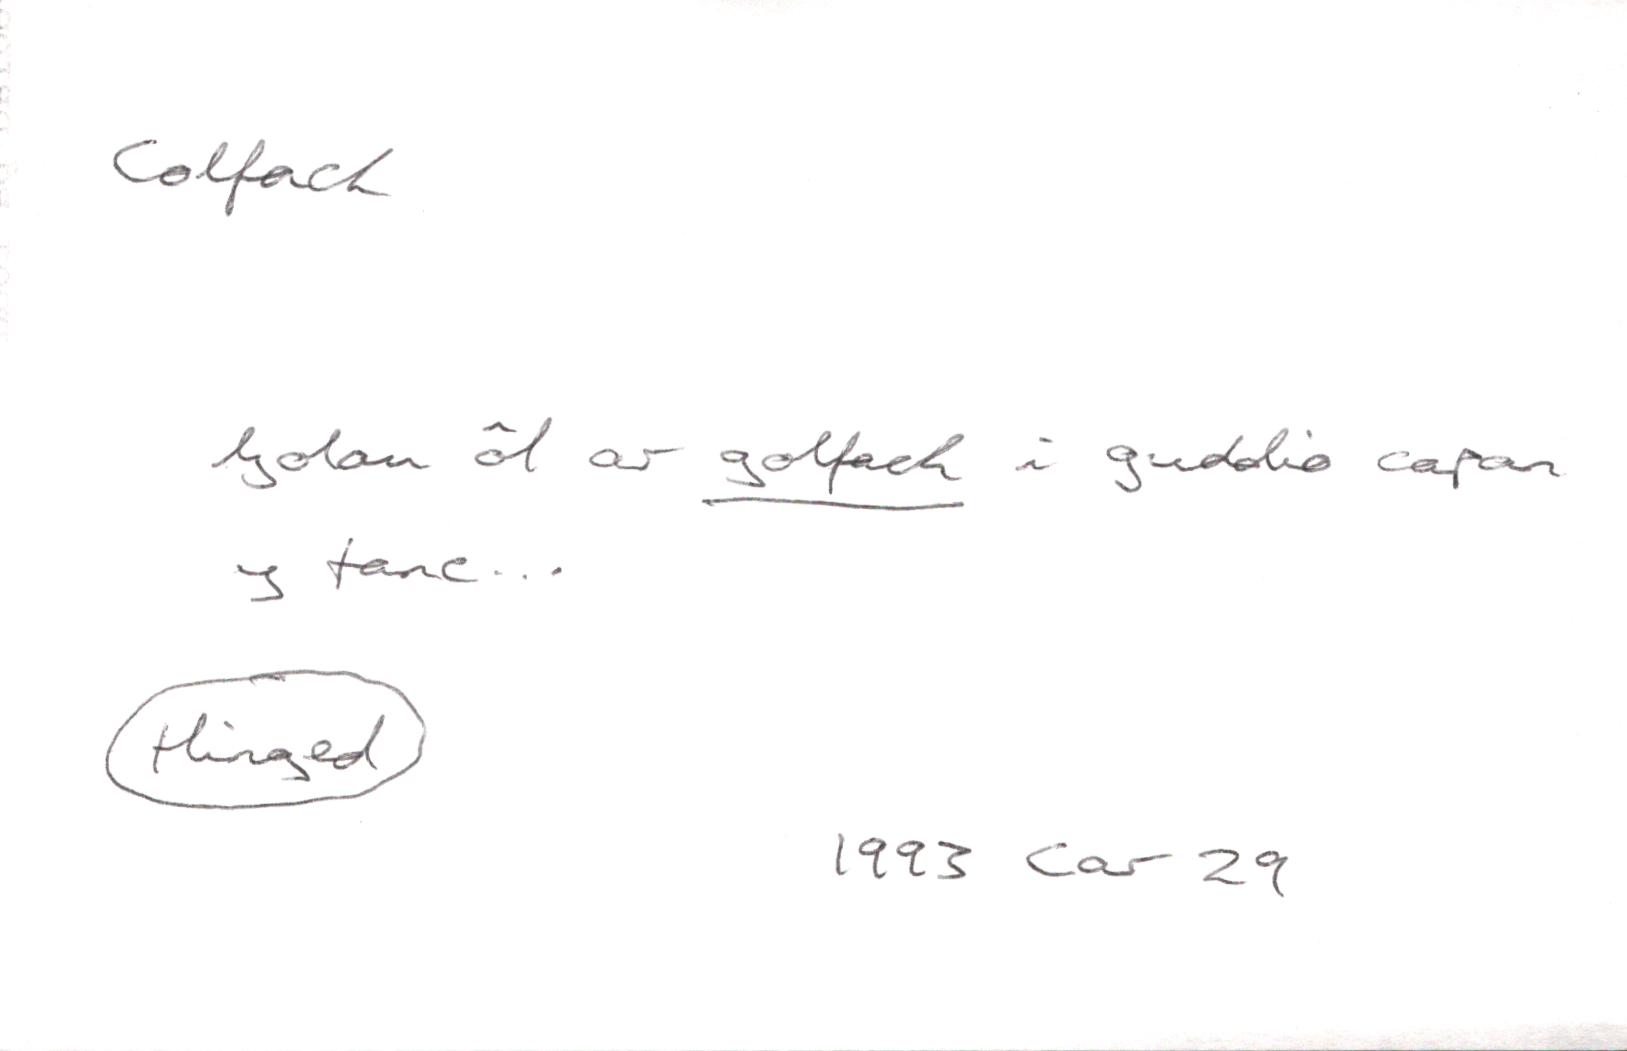 Colfach
Golau ôl ar golfach i guddio capan
y tanc...
Hinged
1993 Car 29